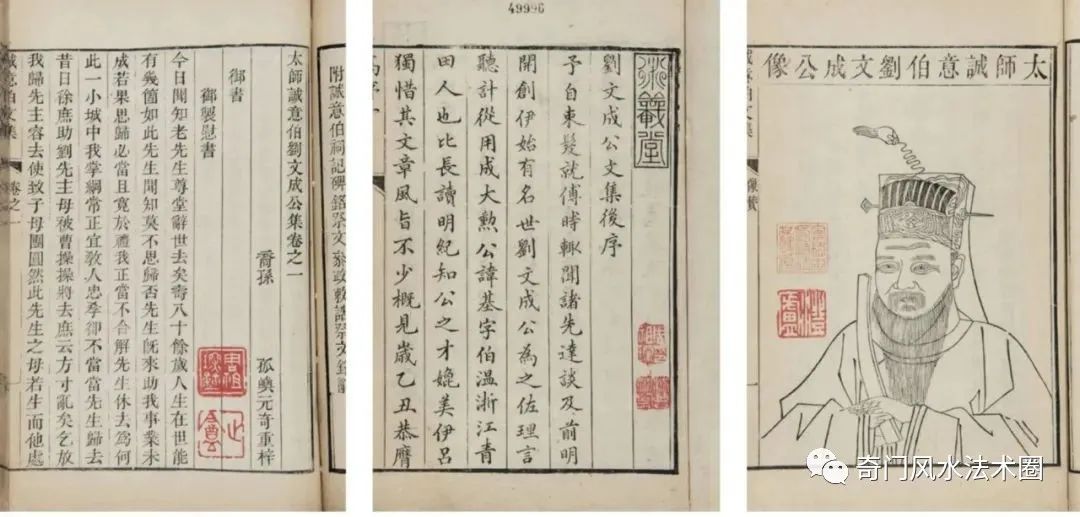 附誠意伯祠記碑銘祭文
太師誠意伯劉文成公集卷之一
裔孫 孤嶼元奇重梓
御書
御製慰書
今日聞知老先生尊堂辭世去矣壽八十餘歲人生在世能
有幾箇如此先生聞知莫不思歸否先生旣來助我事業未
成若果思歸必當且於禮我正當不合解先生休去為何
此一小城中我掌綱常正宜敎人忠孝卻不當先生歸去
昔日徐庶助劉先主母被曹操操將去庶云方寸亂矣乞放
我歸先主容去使致子母團圓然此先生之母若生而他處
誠意伯文集 卷之一
49996
劉文成公文集後序
予自束髮就傅時輙聞諸先達談及前明
開創伊始有名世劉文成公為之佐理言
聽計從用成大勲公諱基字伯温浙江青
田人也比長讀明紀知公之才媲美伊呂
獨惜其文章風旨不少概見歲乙丑恭膺
太師誠意伯劉文成公像
奇门风水法术圈